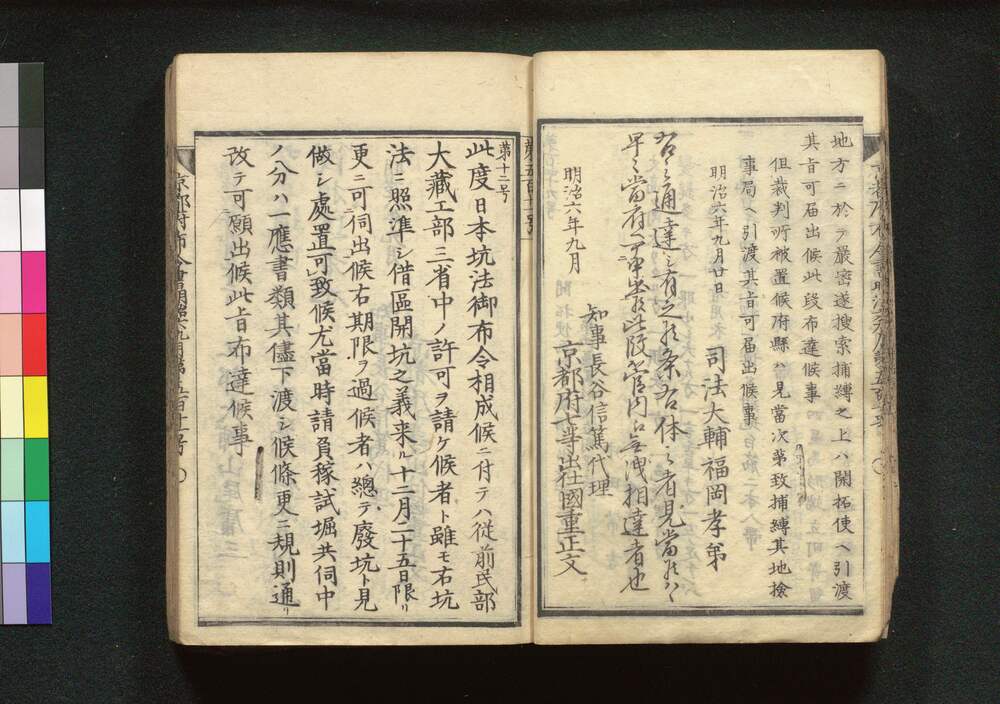 地方ニ於テ嚴密遂搜索捕縛之上ハ開拓使ヘ引渡
其旨可届出候此段布達候事
但裁判所被置候府縣ハ見當次第致捕縛其地檢
事局ヘ引渡其旨可届出候事
明治六年九月廿日
司法大輔福岡孝弟
右之通達シ有之候条右体之者見當候ハヽ
早々當府ヘ可申出候此段管内江無洩相達者也
明治六年九月
知事長谷信篤代理
京都府七等出仕國重正文
第五百十一号
第十二号
此度日本坑法御布令相成候ニ付テハ從前民部
大藏工部三省中ノ許可ヲ請ケ候者ト雖モ右坑
法ニ照準シ借區開坑之義来ル十二月二十五日限リ
更ニ可伺出候右期限ヲ過候者ハ總テ廢坑ト見
做シ處置可致候尤當時請負稼試堀共伺中
ノ分ハ一應書類其儘下渡シ候條更ニ規則通リ
改テ可願出候此旨布達候事
京都府布令書明治六年九月第五百十一号